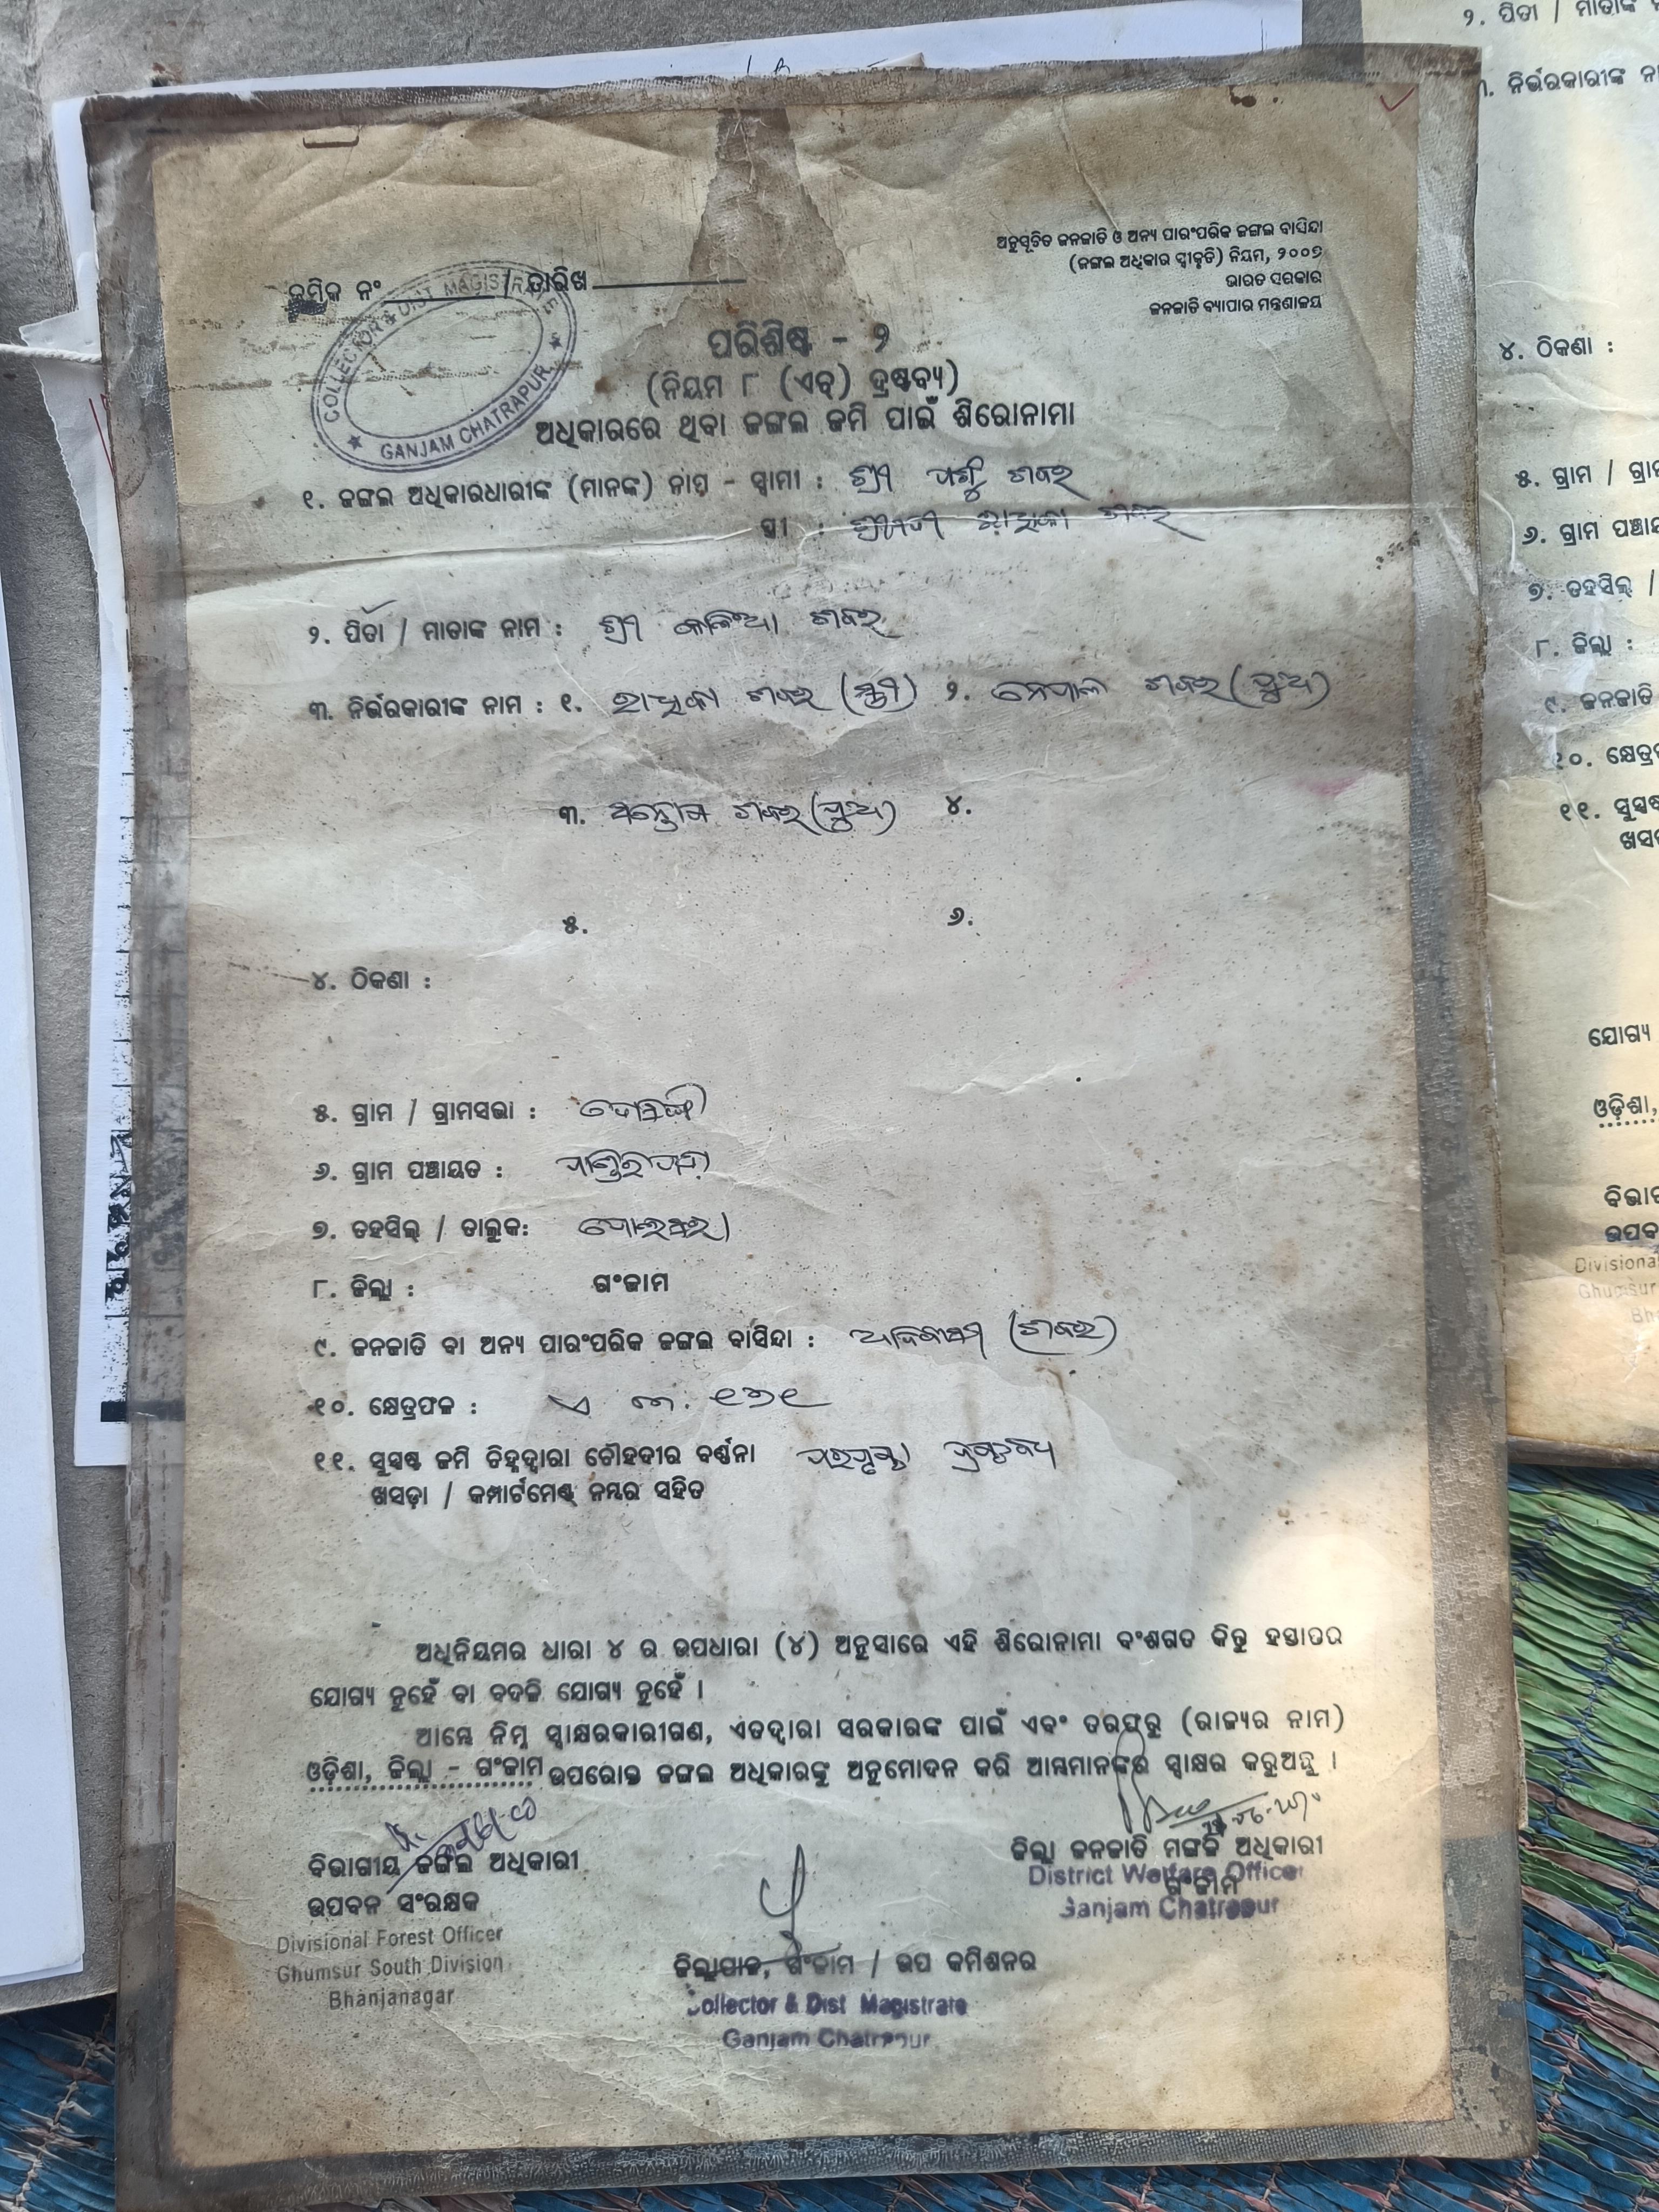 ଅନୁସୂଚିତ ଜନଜାତି ଓ ଅନ୍ୟ ପାରଂପରିକ ଜଙ୍ଗଲ ବାସିନ୍ଦା
(ଜଙ୍ଗଲ ଅଧିକାର ସ୍ୱୀକୃତି) ନିୟମ, ୨୦୦୭
ଭାରତ ସରକାର
ଜନଜାତି ବ୍ୟାପାର ମନ୍ତ୍ରଣାଳୟ
କ୍ରମିକ ନଂ / ତାରିଖ
COLLECTOR & DIST. MAGISTRATE
GANJAM CHATRAPUR
ପରିଶିଷ୍ଟ - ୨
(ନିୟମ ୮ (ଏଚ୍) ଦ୍ରଷ୍ଟବ୍ୟ)
ଅଧିକାରରେ ଥିବା ଜଙ୍ଗଲ ଜମି ପାଇଁ ଶିରୋନାମା
୧. ଜଙ୍ଗଲ ଅଧିକାରଧାରୀଙ୍କ (ମାନଙ୍କ) ନାମ - ସ୍ୱାମୀ : ଶ୍ରୀ ଶବର
ସ୍ତ୍ରୀ : ଶ୍ରୀମତୀ ରାଧିକା ଶବର
୨. ପିତା / ମାତାଙ୍କ ନାମ : ଶ୍ରୀ ଶବର
୩. ନିର୍ଭରକାରୀଙ୍କ ନାମ : ୧. ରାଧିକା ଶବର (ସ୍ତ୍ରୀ) ୨. ନେପାଳ ଶବର (ପୁଅ)
୩. ସନ୍ତୋଷ ଶବର (ପୁଅ) ୪.
୫. ୬.
୪. ଠିକଣା :
୫. ଗ୍ରାମ / ଗ୍ରାମସଭା :
୬. ଗ୍ରାମ ପଞ୍ଚାୟତ :
୭. ତହସିଲ୍ / ତାଲୁକ:
୮. ଜିଲ୍ଲା : ଗଂଜାମ
୯. ଜନଜାତି ବା ଅନ୍ୟ ପାରଂପରିକ ଜଙ୍ଗଲ ବାସିନ୍ଦା : (ଶବର)
୧୦. କ୍ଷେତ୍ରଫଳ :
୧୧. ସୁସ୍ପଷ୍ଟ ଜମି ଚିହ୍ନଦ୍ୱାରା ଚୌହଦୀର ବର୍ଣ୍ଣନା ପରପୃଷ୍ଠା ଦ୍ରଷ୍ଟବ୍ୟ
ଖସଡ଼ା / କମ୍ପାର୍ଟମେଣ୍ଟ ନମ୍ବର ସହିତ
ଅଧିନିୟମର ଧାରା ୪ ର ଉପଧାରା (୪) ଅନୁସାରେ ଏହି ଶିରୋନାମା ବଂଶଗତ କିନ୍ତୁ ହସ୍ତାନ୍ତର
ଯୋଗ୍ୟ ନୁହେଁ ବା ବଦଳି ଯୋଗ୍ୟ ନୁହେଁ ।
ଆମ୍ଭେ ନିମ୍ନ ସ୍ୱାକ୍ଷରକାରୀଗଣ, ଏତଦ୍ୱାରା ସରକାରଙ୍କ ପାଇଁ ଏବଂ ତରଫରୁ (ରାଜ୍ୟର ନାମ)
ଓଡ଼ିଶା, ଜିଲ୍ଲା - ଗଂଜାମ ଉପରୋକ୍ତ ଜଙ୍ଗଲ ଅଧିକାରଙ୍କୁ ଅନୁମୋଦନ କରି ଆମ୍ଭମାନଙ୍କର ସ୍ୱାକ୍ଷର କରୁଅଛୁ ।
ବିଭାଗୀୟ ଜଙ୍ଗଲ ଅଧିକାରୀ
ଉପବନ ସଂରକ୍ଷକ
Divisional Forest Officer
Ghumsur South Division
Bhanjanagar
ଜିଲ୍ଲା ଜନଜାତି ମଙ୍ଗଳ ଅଧିକାରୀ
ଗଂଜାମ
District Welfare Officer
Ganjam Chatrapur
ଜିଲ୍ଲାପାଳ, ଗଂଜାମ / ଉପ କମିଶନର
Collector & Dist Magistrate
Ganjam Chatrapur
୨. ପିତା / ମାତାଙ୍କ
୪. ଠିକଣା :
୫. ଗ୍ରାମ /
୬. ଗ୍ରାମ
୭. ତହସିଲ୍ /
୮. ଜିଲ୍ଲା :
୯. ଜନଜାତି
ଯୋଗ୍ୟ
ଓଡ଼ିଶା,